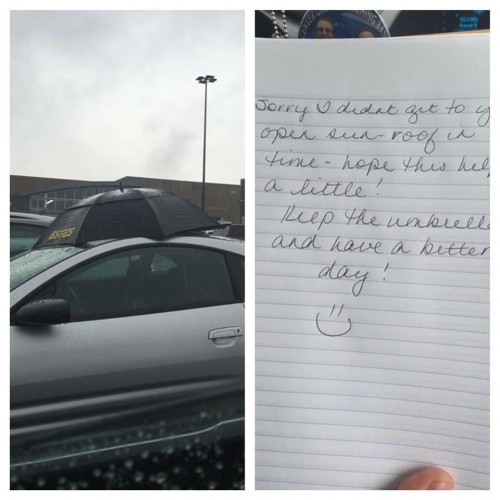 ESTES
Sorry I didnt get to y
open sun-roof in
time - hope this hel
a little!
Keep the umbrell
and have a better
day!